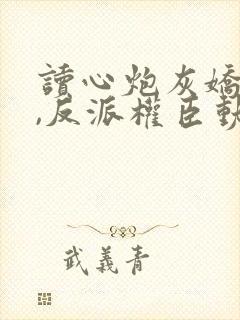 讀心炮灰嬌
,反派權臣
武義青